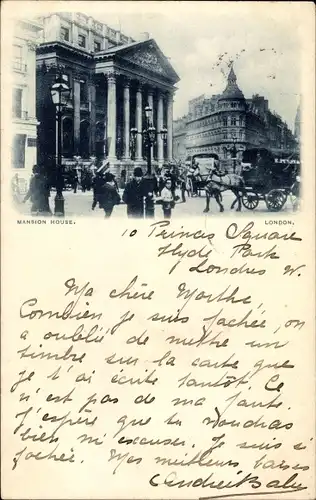 MANSION HOUSE. LONDON.
10 Princes Square
Hyde Park
Londres W.
Ma chère Marthe,
Combien je suis fachée, on
a oublié de mettre un
timbre sur la carte que
je t'ai écrite tantôt. Ce
n'est pas de ma faute.
J'espère que tu voudras
bien, m'excuser. Je suis si
fachée. Mes meilleurs baisers